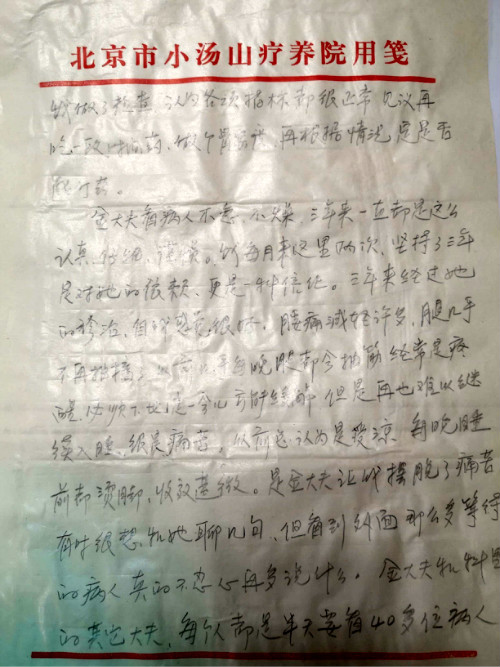 北京市小汤山疗养院用笺
我做了检查，认为各项指标都很正常 建议再
吃一段时间药，做个骨，再根据情况定是否
药。
金大夫看病人不急，不燥，三年来一直都是这么
认真，仔细，。我每月来这里两次，坚持了三年
是对她的依赖，更是一种信任。三年来经过她
的诊治，自我感觉很好，腰痛减轻许多，腿几乎
不再抽搐了 以前几乎每晚腿都会抽筋 经常是疼
醒 必须下地 一会儿才能缓解 但是再也难以继
续入睡，很是痛苦。以前总认为是受凉 每晚睡
前都烫脚，收效甚微。是金大夫让我摆脱了痛苦
有时很想和她聊几句，但看到外面那么多等待
的病人 真的不忍心再多说什么。金大夫和科里
的其它大夫，每个人都是半天要看40多位病人